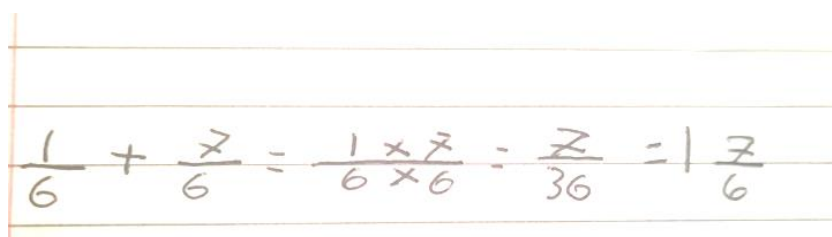 1/6 + 7/6 = (1 × 7)/(6 × 6) = 7/36 = 1 7/6